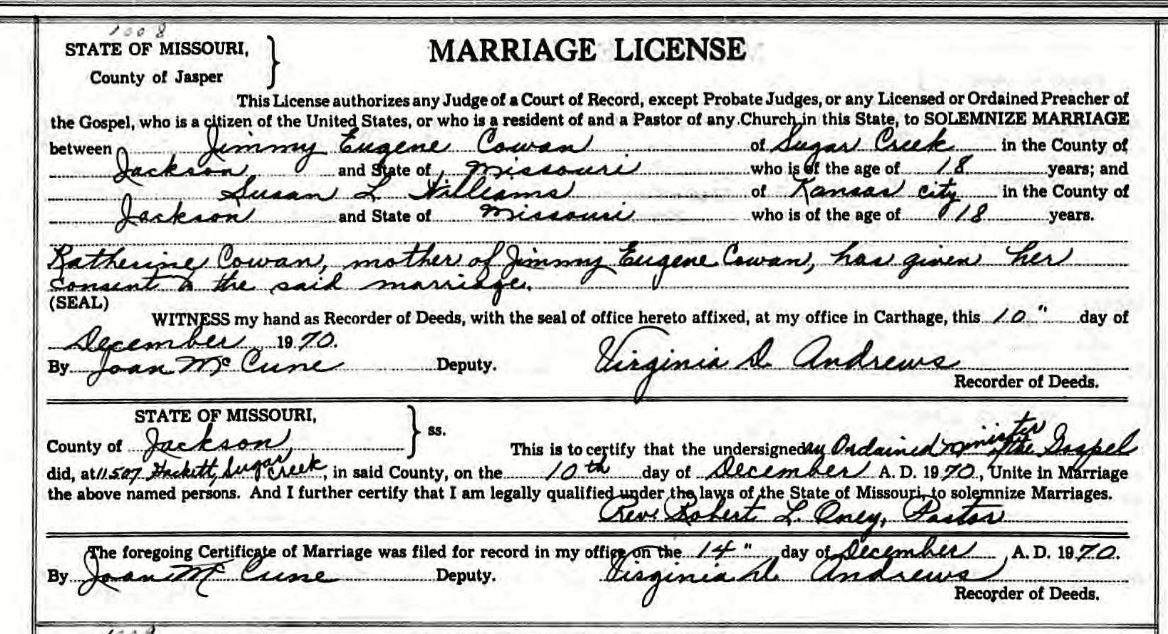 1008
STATE OF MISSOURI,
County of Jasper
MARRIAGE LICENSE
This License authorizes any Judge of a Court of Record, except Probate Judges, or any Licensed or Ordained Preacher of
the Gospel, who is a citizen of the United States, or who is a resident of and a Pastor of any Church in this State, to SOLEMNIZE MARRIAGE
between Jimmy Eugene Cowan of Sugar Creek in the County of
Jackson and State of Missouri who is of the age of 18 years; and
Susan L Williams of Kansas City in the County of
Jackson and State of Missouri who is of the age of 18 years.
Katherine Cowan, mother of Jimmy Eugene Cowan, has given her
consent to the said marriage.
(SEAL)
WITNESS my hand as Recorder of Deeds, with the seal of office hereto affixed, at my office in Carthage, this 10" day of
December 1970.
By Joan McCune Deputy. Virginia D. Andrews
Recorder of Deeds.
STATE OF MISSOURI,
County of Jackson } ss. This is to certify that the undersigned an Ordained minister of the Gospel
did, at 11507 Hackett, Sugar Creek, in said County, on the 10th day of December A. D. 1970, Unite in Marriage
the above named persons. And I further certify that I am legally qualified under the laws of the State of Missouri, to solemnize Marriages.
Rev. Robert L. Oney, Pastor
The foregoing Certificate of Marriage was filed for record in my office on the 14" day of December A. D. 1970.
By Joan McCune Deputy. Virginia D. Andrews
Recorder of Deeds.